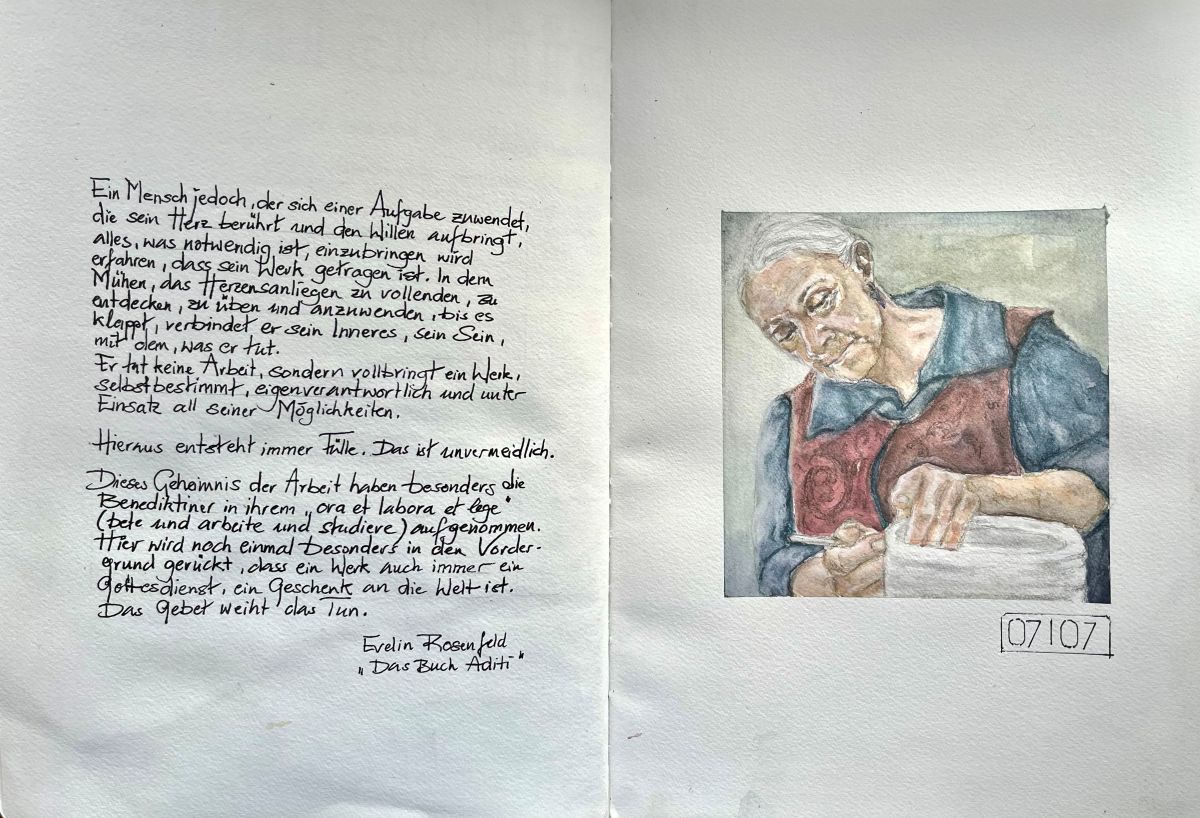 Ein Mensch jedoch, der sich einer Aufgabe zuwendet,
die sein Herz berührt und den Willen aufbringt,
alles, was notwendig ist, einzubringen wird
erfahren, dass sein Werk getragen ist. In dem
Mühen, das Herzensanliegen zu vollenden, zu
entdecken, zu üben und anzuwenden, bis es
klappt, verbindet er sein Inneres, sein Sein,
mit dem, was er tut.
Er tut keine Arbeit, sondern vollbringt ein Werk,
selbstbestimmt, eigenverantwortlich und unter
Einsatz all seiner Möglichkeiten.
Hieraus entsteht immer Fülle. Das ist unvermeidlich.
Dieses Geheimnis der Arbeit haben besonders die
Benediktiner in ihrem „ora et labora et lege"
(bete und arbeite und studiere) aufgenommen.
Hier wird noch einmal besonders in den Vorder-
grund gerückt, dass ein Werk auch immer ein
Gottesdienst, ein Geschenk an die Welt ist.
Das Gebet weiht das Tun.
Evelin Rosenfeld
„Das Buch Aditi"
07107